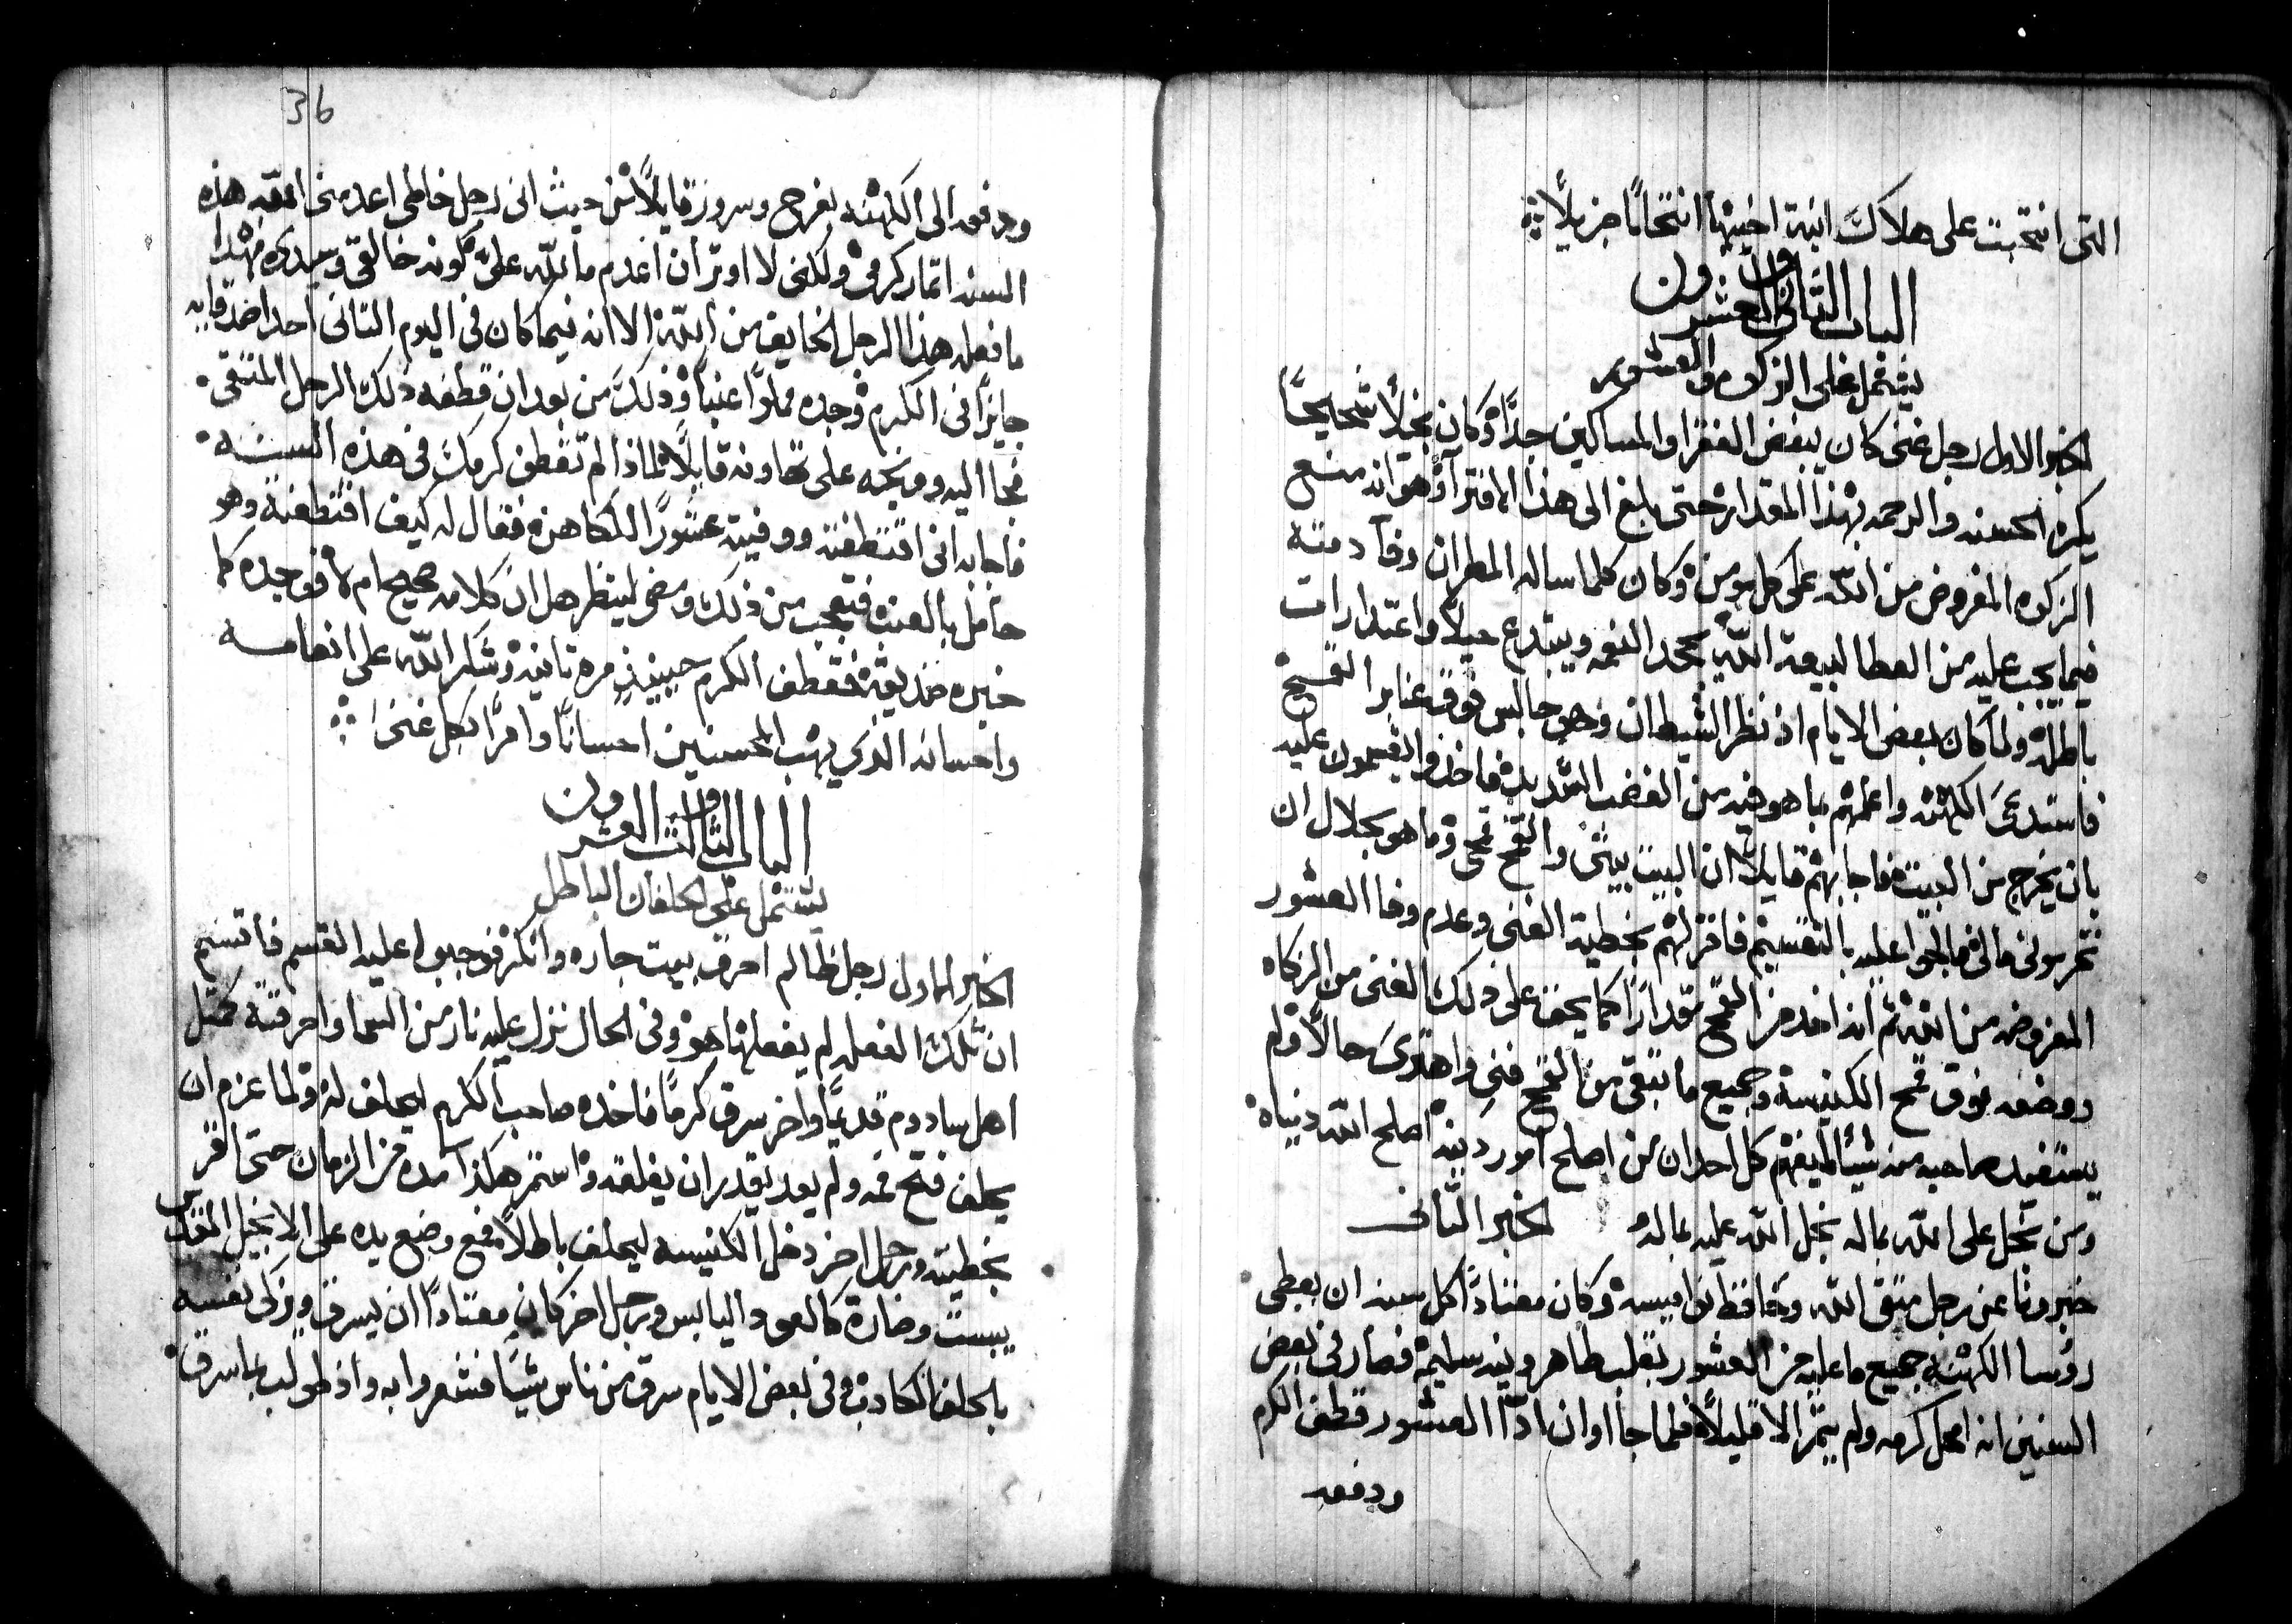 التى انتحبت على هلاك ابنة اخيها انتحابًا جزيلًا
الباب الثانى والعشرون
يشتمل على الزكوه والعشور
الخبر الاول رجل غنى كان يبغض الفقرا والمساكين جدًا وكان بخيلًا شحيحًا
يكره الحسنه والرحمه بهذا المقدار حتى بلغ الى هذا الافترا وهو انه منع
الزكوه المفروض من الله على كل مومن وكان كلما ساله المطران وفا ذمته
فيما يجب عليه من العطا لبيعة الله يجحد النعمه ويبتدع حيلًا واعتدارات
باطله ولما كان بعض الايام اذ نظر الشيطان وهو جالس فوق عنابر القمح
فاستدعى الكهنه واعلمهم بما هو فيه من الغضب الشديد فاخذوا يقسمون عليه
بان يخرج من البيت فاجابهم قايلًا ان البيت بيتى والقمح قمحى وما هو بحلال ان
تحرمونى مالى فالحوا عليه بالتقسيم فاقر لهم بخطية الغنى وعدم وفا العشور
المفروضه من الله ثم انه اخذ من القمح مقدارًا كما يحق على ذلك الغنى من الزكاه
ووضعه فوق قمح الكنيسة وجميع ما تبقى من القمح فنى واهترى حالًا ولم
يستفيد صاحبه منه شيًا ليفهم كل احد ان من اصلح امور دينه اصلح الله دنياه
ومن بخل على الله بماله بخل الله عليه بماله الخبر الثانى
خبرونا عن رجل متقى الله وحافظ نواميسه وكان معتادًا كل سنه ان يعطى
روسا الكهنه جميع ما عليه من العشور بقلب طاهر ونيه سليمه فصار فى بعض
السنين انه امحل كرمه ولم يثمر الا قليلًا فلما جا اوان ادا العشور قطف الكرم
ودفعه
36
ودفعه الى الكهنه بفرح وسرور قايلًا من حيث انى رجل خاطى اعدمنى الله هذه
السنه اتمار كرمى ولكنى لا اوتر ان اعدم ما لله علىّ كونه خالقى وسيدى فهدا
ما فعله هذا الرجل الخايف من الله الا انه فيما كان فى اليوم التانى احد اصدقايه
جايزًا فى الكرم وجده مملوًا عنبًا وذلك من بعد ان قطفه ذلك الرجل المتقى
فجا اليه ووبخه على تهاونه قايلًا لماذا لم تقطف كرمك فى هذه السنه
فاجابه انى اقتطفته ووفيته عشورًا للكاهن فقال له كيف اقتطفته وهو
حامل بالعنب فتعجب من ذلك ومضى لينظر هل ان كلامه صحيح ام لا فوجده كما
خبره صديقه فقطف الكرم حينيذٍ مره تانيه وشكر الله على انعامه
واحسانه الذى يهب المحسنين احسانًا وافرًا بكل غنى
الباب الثالث والعشرون
يشتمل على الحلفان الباطل
الخبر الاول رجل ظالم احرق بيت جاره وانكر فوجبوا عليه القسم فاقسم
ان تلك الفعله لم يفعلها هو وفى الحال نزل عليه نار من السما واحرقته كمتل
اهل سادوم قديمًا واخر سرق كرمًا فاخذه صاحب الكرم ليحلف له ولما عزم ان
يحلف فتح فمه ولم يعد يقدر ان يغلقه واستمر هكذا مده من الزمان حتى اقر
بخطيته ورجل اخر دخل الكنيسه ليحلف باطلًا فمع وضع يده على الانجيل المقدس
يبست وصارة كالعود اليابس ورجل اخر كان معتادًا ان يسرق ويزكى نفسه
بالحلف الكادب وفى بعض الايام سرق من ناس شيًا فشعروا به واذ طولب بما سرق